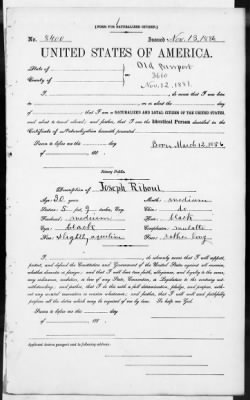 [FORM FOR NATURALIZED CITIZEN.]
No. 8400 Issued Nov. 13, 1886
UNITED STATES OF AMERICA.
State of Old Passport
County of
Nov. 12, 1881.
I, do swear that I was born
in on or about the day
of ; that I am a NATURALIZED AND LOYAL CITIZEN OF THE UNITED STATES,
and about to travel abroad; and further, that I am the Identical Person described in the
Certificate of Naturalization herewith presented.
Sworn to before me, this day Born March 12, 1856.
of 188
Notary Public.
Description of Joseph Riboul
Age: 30 years Mouth: medium
Stature: 5 feet, 9 inches, Eng. Chin: do
Forehead: medium Hair: black
Eyes: black Complexion: mulatto
Nose: slightly aquiline Face: rather long
I, , do solemnly swear that I will support,
protect, and defend the Constitution and Government of the United States against all enemies,
whether domestic or foreign; and that I will bear true faith, allegiance, and loyalty to the same,
any ordinance, resolution, or law of any State, Convention, or Legislature to the contrary not-
withstanding; and further, that I do this with a full determination, pledge, and purpose, with-
out any mental reservation or evasion whatsoever; and further, that I will well and faithfully
perform all the duties which may be required of me by law. So help me God.
Sworn to before me, this day
of 188
Applicant desires passport sent to following address: